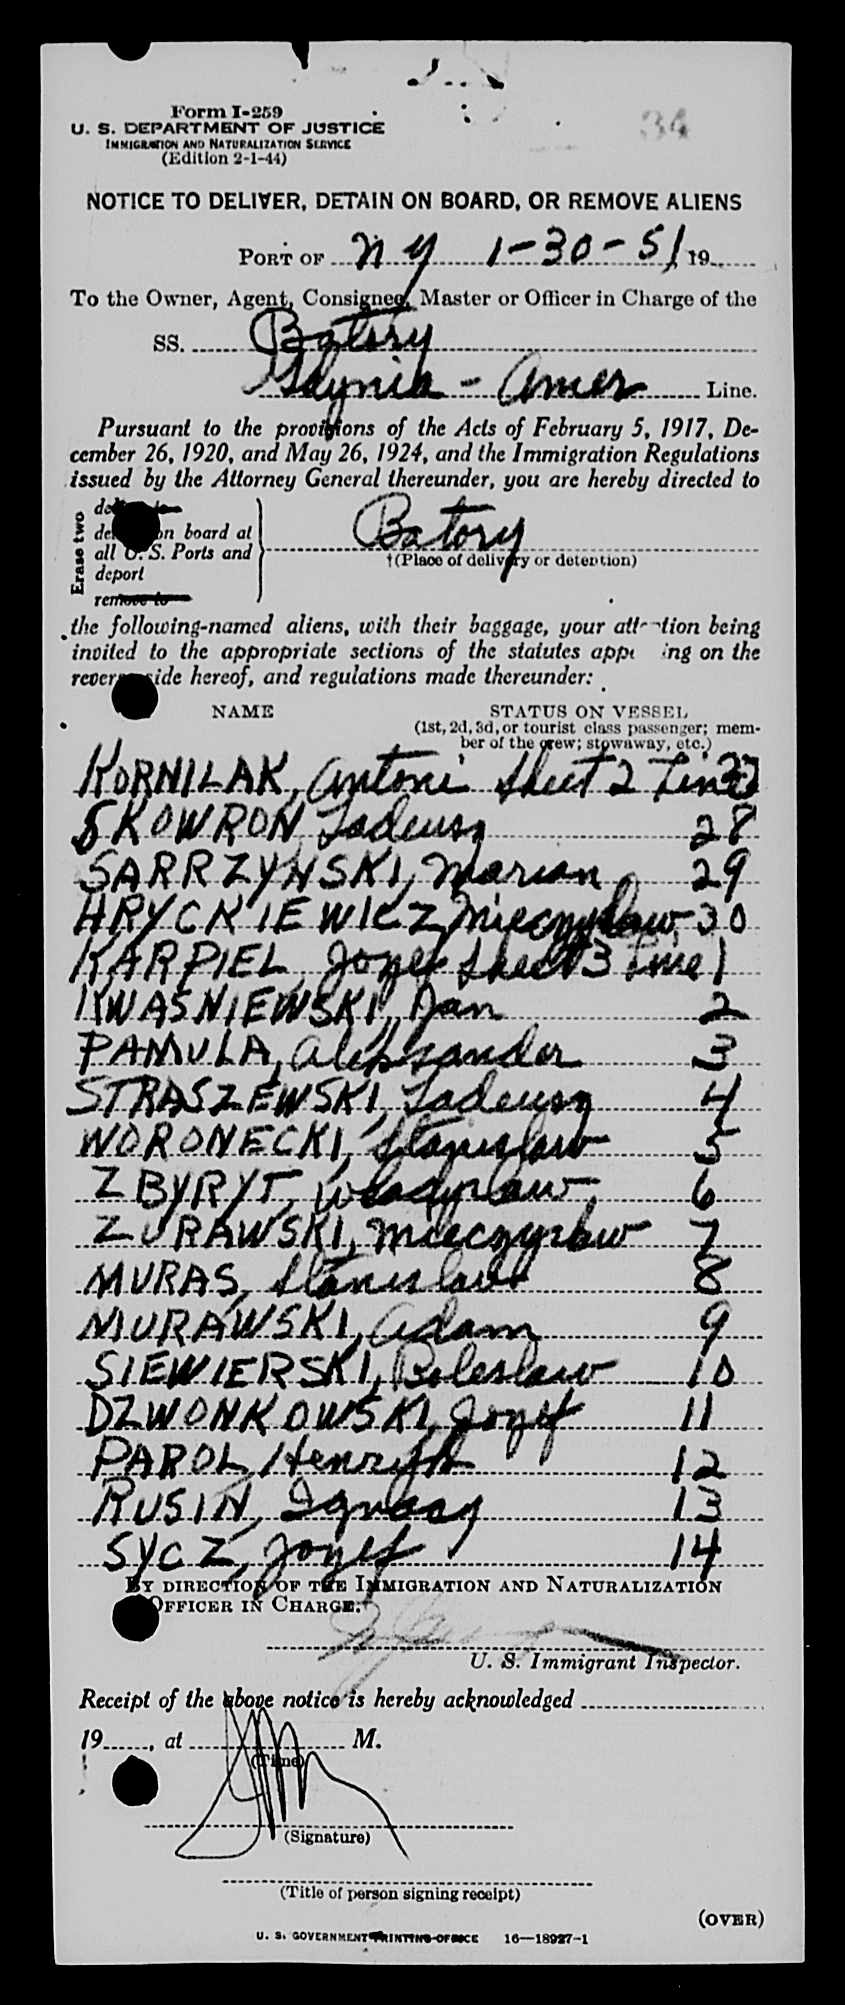 34
Form I-259
U. S. DEPARTMENT OF JUSTICE
IMMIGRATION AND NATURALIZATION SERVICE
(Edition 2-1-44)
NOTICE TO DELIVER, DETAIN ON BOARD, OR REMOVE ALIENS
PORT OF NY 1-30-51 19
To the Owner, Agent, Consignee, Master or Officer in Charge of the
SS. Batory
Gdynia - Amer Line.
Pursuant to the provisions of the Acts of February 5, 1917, De-
cember 26, 1920, and May 26, 1924, and the Immigration Regulations
issued by the Attorney General thereunder, you are hereby directed to
Erase two
on board at
all U. S. Ports and
deport
remove to
Batory
†(Place of delivery or detention)
the following-named aliens, with their baggage, your attention being
invited to the appropriate sections of the statutes appearing on the
reverse side hereof, and regulations made thereunder:
NAME STATUS ON VESSEL
(1st, 2d, 3d, or tourist class passenger; mem-
ber of the crew; stowaway, etc.)
KORNILAK, Antoni Sheet 2 Line
SKOWRON Tadeusz 28
SARRZYNSKI, Marian 29
HRYCKIEWICZ, Mieczyslaw 30
KARPIEL, Jozef Sheet 3 Line 1
KWASNIEWSKI, Jan 2
PAMULA, Aleksander 3
STRASZEWSKI, Tadeusz 4
WORONECKI, Stanislaw 5
ZBYRYT, Wladyslaw 6
ZURAWSKI, Mieczyslaw 7
MURAS, Stanislaw 8
MURAWSKI, Adam 9
SIEWIERSKI, Boleslaw 10
DZWONKOWSKI, Jozef 11
PAROL, Henryk 12
RUSIN, Ignacy 13
SYCZ, Jozef 14
BY DIRECTION OF THE IMMIGRATION AND NATURALIZATION
OFFICER IN CHARGE:†
U. S. Immigrant Inspector.
Receipt of the above notice is hereby acknowledged
19 , at M.
(Time)
(Signature)
(Title of person signing receipt)
(OVER)
U. S. GOVERNMENT PRINTING OFFICE 16—18927-1